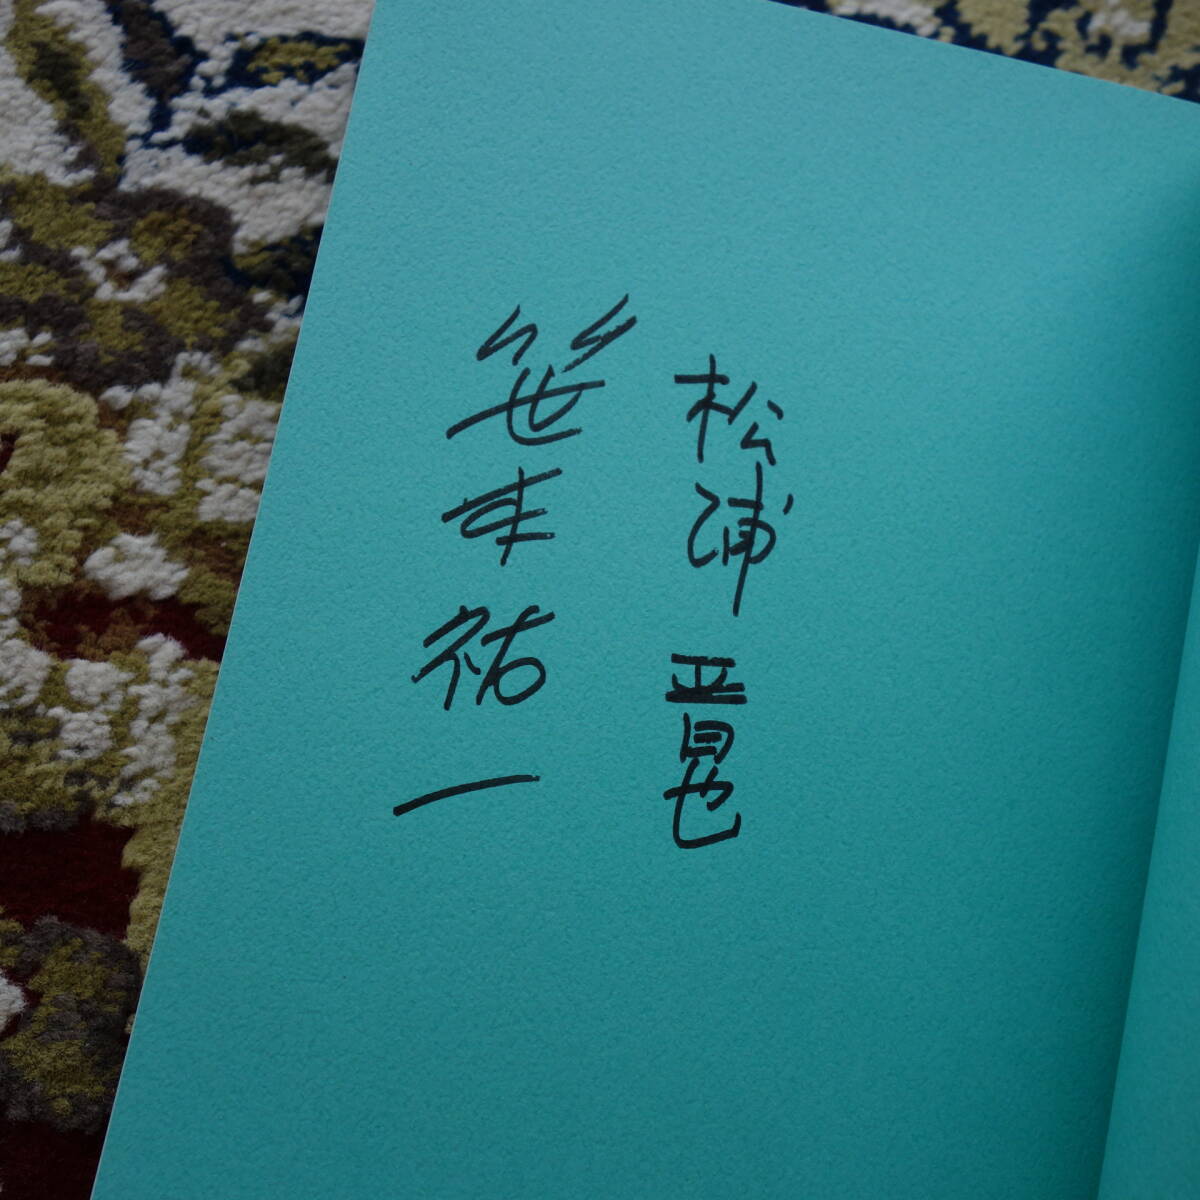 松浦晋也
笹本祐一